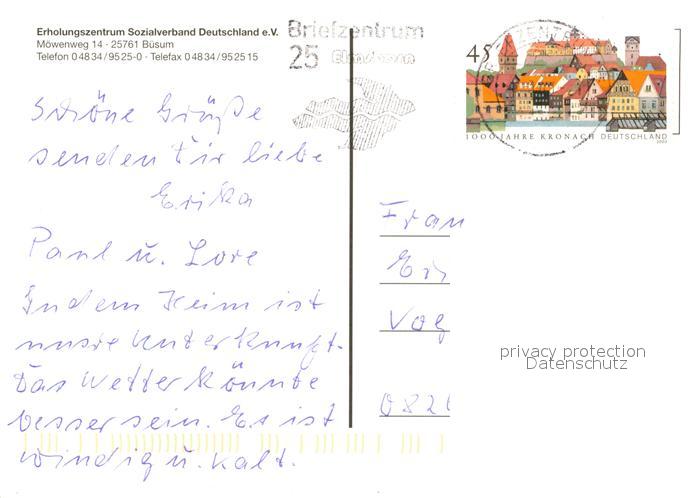 Erholungszentrum Sozialverband Deutschland e.V.
Möwenweg 14 · 25761 Büsum
Telefon 0 48 34 / 95 25-0 · Telefax 0 48 34 / 95 25 15
Briefzentrum
25
45
1000 JAHRE KRONACH DEUTSCHLAND
2003
Schöne Grüße
senden Dir liebe
Erika
Paul u. Lore
In dem Heim ist
unsre Unterkunft.
Das Wetter könnte
besser sein. Es ist
windig u. kalt.
Frau
Er
Vog
082
privacy protection
Datenschutz